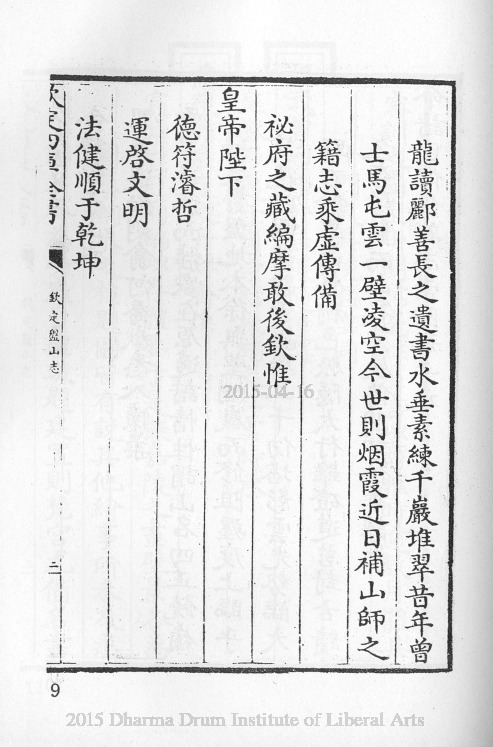 龍讀酈善長之遺書水垂素練千巖堆翠昔年曾
士馬屯雲一壁凌空今世則烟霞近日補山師之
籍志乘虛傳備
祕府之藏編摩敢後欽惟
皇帝陛下
德符濬哲
運啓文明
法健順于乾坤
欽定四庫全書
欽定盤山志
二
2015-04-16
9
2015 Dharma Drum Institute of Liberal Arts